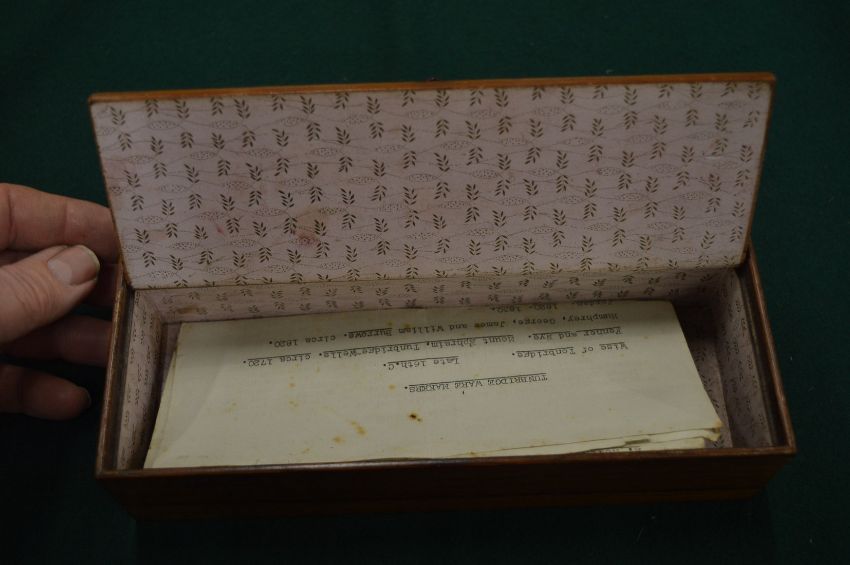 TUNBRIDGE WARE MAKERS.
Wise of Tonbridge. Late 16th.C
Fenner and Nye. Mount Ephraim, Tunbridge-Wells. circa 1720.
Humphrey, George, James and William Burrows. circa 1820.